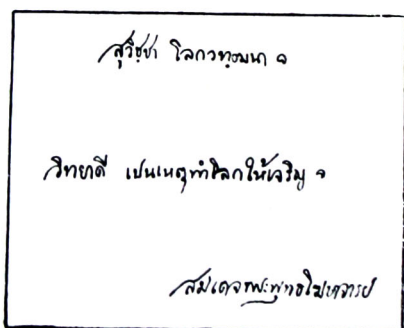 สุวิชฺชา โลกวฑฺฒนา ๑
วิทยาดี เปนเหตุทำโลกให้เจริญ ๑
สมเดจพระพุทธโฆษาจารย์